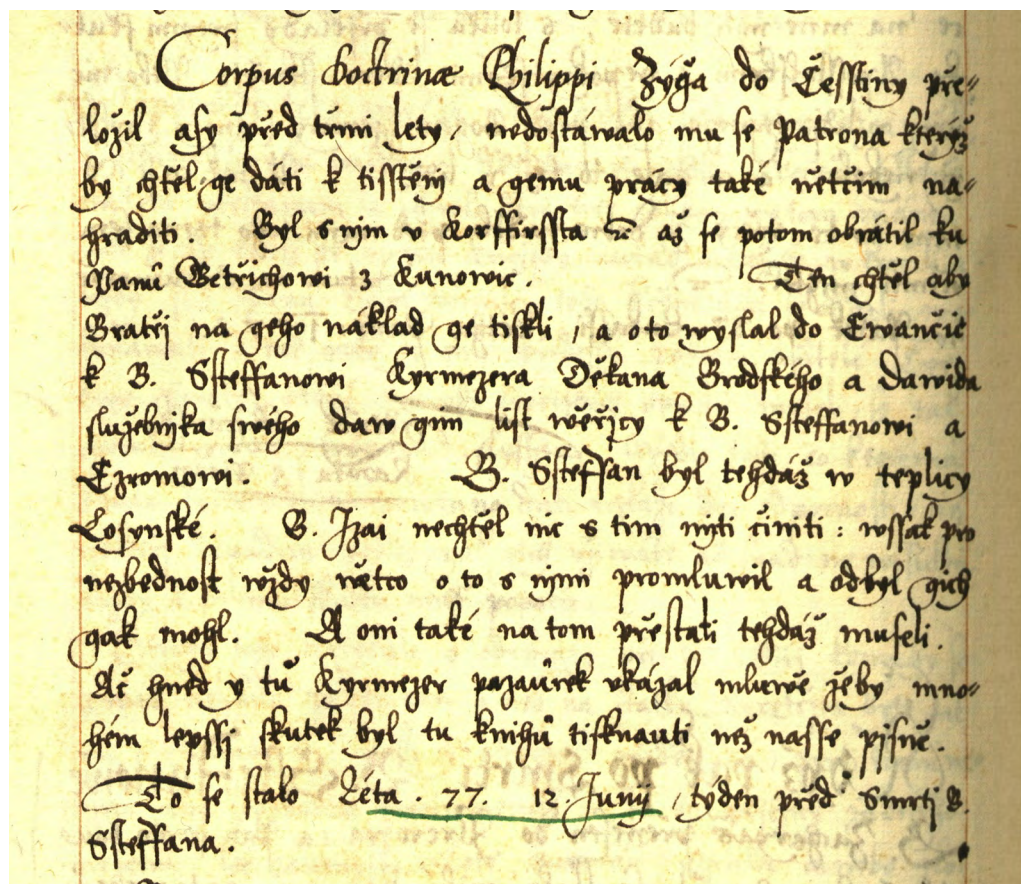 Corpus Doctrinæ Philippi Zýğa do Cžesstiny pře-
ložil asy před třmi lety, nedostáwalo mu se Patrona kterýž
by chtěl ge dáti k tisstěnj a gemu prácy také nětčim na-
hraditi. Byl s njm v Korffirssta až se potom obrátil ku
Panu Betřichowi z Kunowic. Ten chtěl aby
Bratřj na geho náklad ge tiskli, a o to wyslal do Ewančic
k B. Sstěffanowi Kyrmezera Děkana Brodského a Dawida
služebnjka swého daw gim list wěřjcy k B. Sstěffanowi a
Ezromowi. B. Stěffan byl tehdáž w teplicy
Losynské. B. Izai nechtěl nic s tim mjti činiti: wssak pro
nezbednost wždy nětco o to s njmi promluwil a odbyl gich
gak mohl. A oni také na tom přestati tehdáž museli.
Ač hned y tu Kyrmezer pazaurek vkázal mluwě žeby mno-
hém lepssj skutek byl tu knihů tisknauti než nasse pjsně.
To se stalo Léta . 77. 12. Junij, týden před Smrtj B.
Sstěffana.